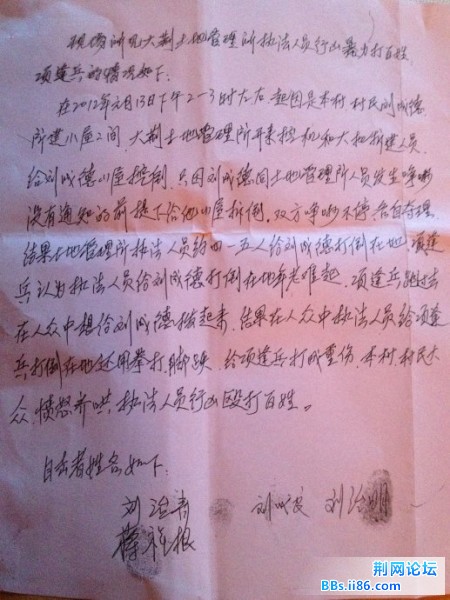 现场所见大荆土地管理所执法人员行凶暴力打百姓
项建兵的情况如下:
在2012年2月13日下午2-3时左右,起因是本村村民刘成德
所建小屋2间,大荆土地管理所开来挖机和大批拆建人员
给刘成德小屋挖倒,只因刘成德同土地管理所人员发生争吵
没有通知的前提下给他小屋拆倒,双方争吵不停各自夺理,
结果土地管理所执法人员约四一五人给刘成德打倒在地,项建
兵认为执法人员给刘成德打倒在地年老难起,项建兵跑过去
在人众中想给刘成德扶起来,结果在人众中执法人员给项建
兵打倒在地还用拳打脚踢,给项建兵打成重伤,本村村民大
众愤怒开哄,执法人员行凶殴打百姓。
目击者姓名如下:
刘治青 刘 刘治明
根
荆网论坛
BBs.ii86.com